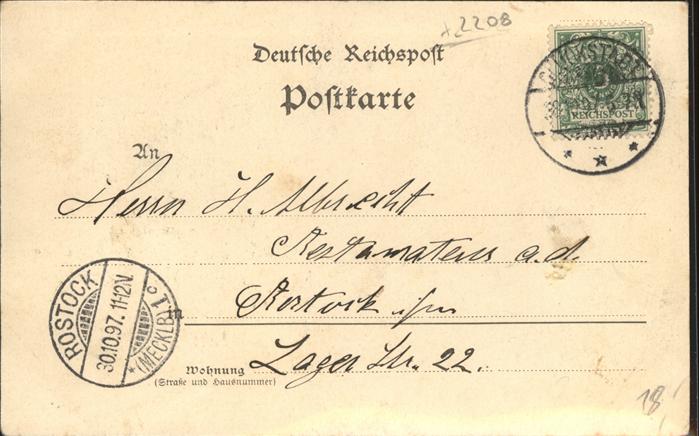 x2208
Deutsche Reichspost
Postkarte
GLÜCKSTADT
REICHSPOST
An
Herrn H. Albrecht
a.d.
Rostock i/m
in
Lager Str. 22.
Wohnung
(Straße und Hausnummer)
ROSTOCK
30.10.97. 11-12N.
* (MECKLB) 1 c
18